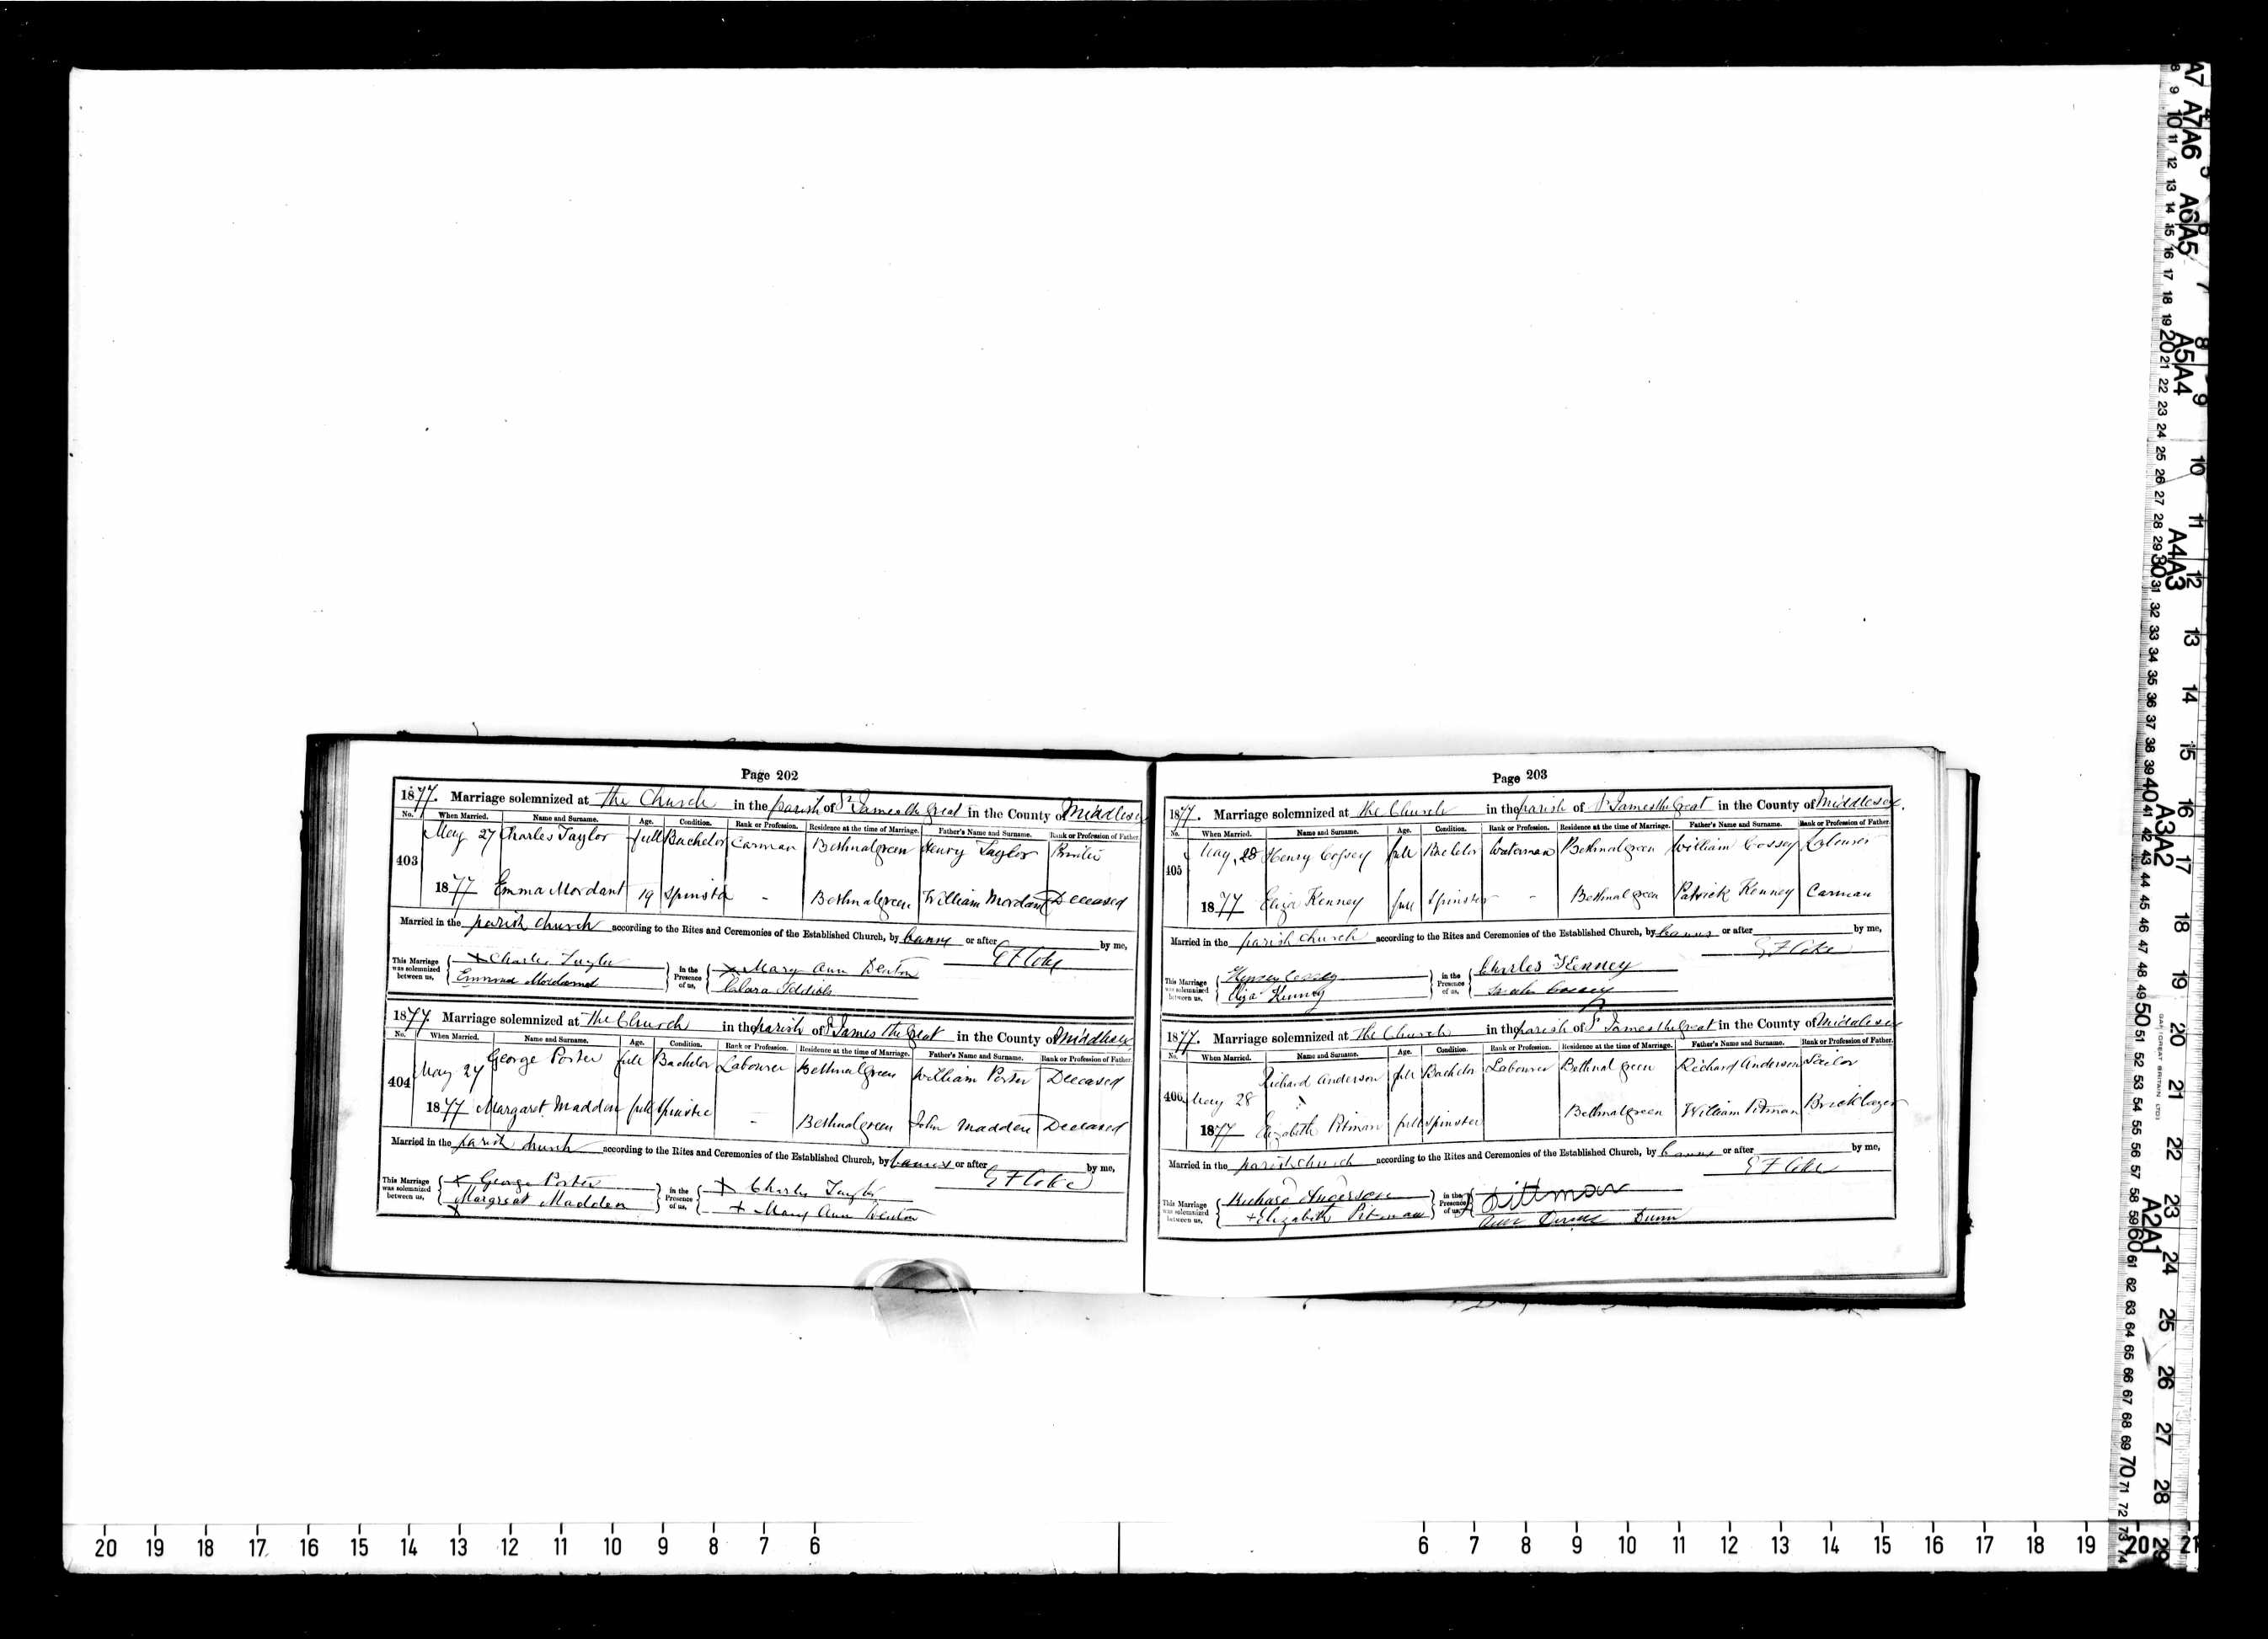 Page 202
1877. Marriage solemnized at The Church in the parish of St James the Great in the County of Middlesex
No. When Married. Name and Surname. Age. Condition. Rank or Profession. Residence at the time of Marriage. Father's Name and Surname. Rank or Profession of Father.
403 May 27 Charles Taylor full Bachelor Carman Bethnal green Henry Taylor
1877 Emma Mordant 19 Spinster - Bethnal green William Mordant Deceased
Married in the parish church according to the Rites and Ceremonies of the Established Church, by banns or after by me,
This Marriage was solemnized between us, X Charles Taylor in the Presence of us, X Mary Ann Denton E F Coke
Emma Mordant Clara
1877. Marriage solemnized at The Church in the parish of St James the Great in the County of Middlesex
No. When Married. Name and Surname. Age. Condition. Rank or Profession. Residence at the time of Marriage. Father's Name and Surname. Rank or Profession of Father.
404 May 27 George Porter full Bachelor Labourer Bethnal green William Porter Deceased
1877 Margaret Madden full Spinster - Bethnal green John Madden Deceased
Married in the parish church according to the Rites and Ceremonies of the Established Church, by banns or after by me,
This Marriage was solemnized between us, X George Porter in the Presence of us, X Charles Taylor E F Coke
X Margreat Madden + Mary Ann Denton
Page 203
1877. Marriage solemnized at The Church in the parish of St James the Great in the County of Middlesex.
No. When Married. Name and Surname. Age. Condition. Rank or Profession. Residence at the time of Marriage. Father's Name and Surname. Rank or Profession of Father.
405 May 28 Henry Cossey full Bachelor Waterman Bethnal green William Cossey Labourer
1877 Eliza Kenney full Spinster - Bethnal green Patrick Kenney Carman
Married in the parish church according to the Rites and Ceremonies of the Established Church, by banns or after by me,
This Marriage was solemnized between us, Henry Cossey in the Presence of us, Charles Kenney E F Coke
Eliza Kenney Sarah Cossey
1877. Marriage solemnized at The Church in the parish of St James the Great in the County of Middlesex
No. When Married. Name and Surname. Age. Condition. Rank or Profession. Residence at the time of Marriage. Father's Name and Surname. Rank or Profession of Father.
406 May 28 Richard Anderson full Bachelor Labourer Bethnal green Richard Anderson Sailor
1877 Elizabeth Pitman full Spinster Bethnal green William Pitman Bricklayer
Married in the parish church according to the Rites and Ceremonies of the Established Church, by banns or after by me,
This Marriage was solemnized between us, Richard Anderson in the Presence of us, Pittman E F Coke
+ Elizabeth Pitman Dunn
20 19 18 17 16 15 14 13 12 11 10 9 8 7 6 6 7 8 9 10 11 12 13 14 15 16 17 18 19 20 21